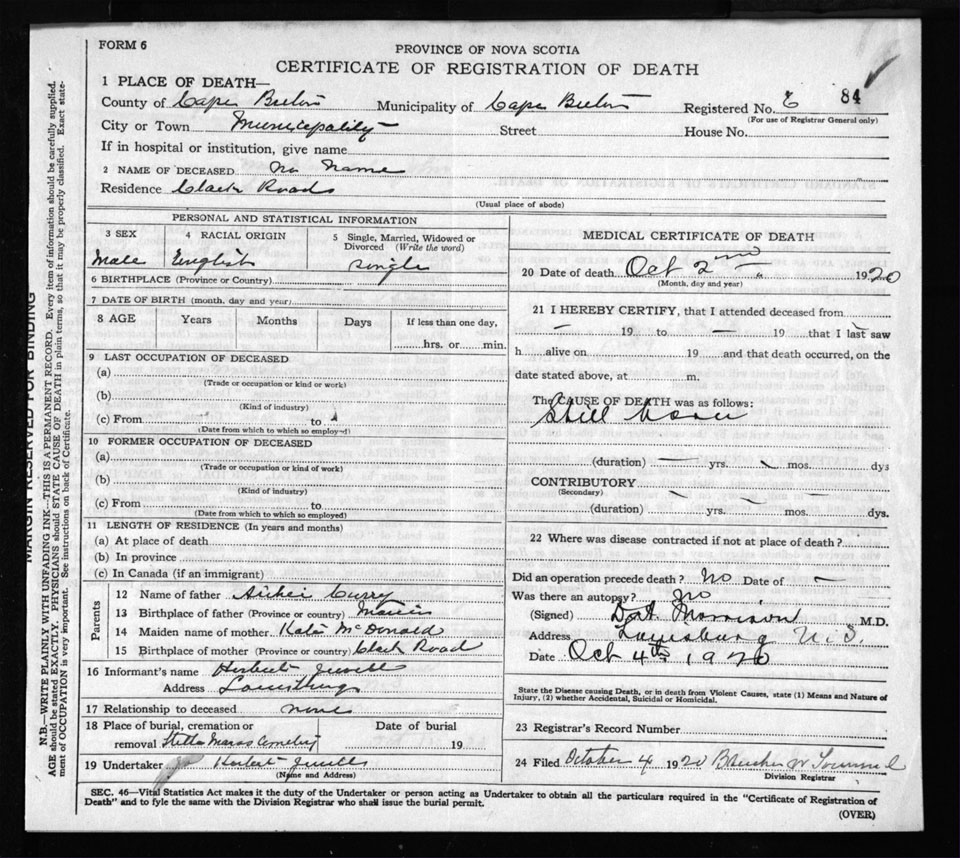 FORM 6
PROVINCE OF NOVA SCOTIA
CERTIFICATE OF REGISTRATION OF DEATH
1 PLACE OF DEATH—
County of Cape Breton Municipality of Cape Breton Registered No. 6 84
(For use of Registrar General only)
City or Town Municipality Street House No.
If in hospital or institution, give name
2 NAME OF DECEASED No Name
Residence Clark Road
(Usual place of abode)
PERSONAL AND STATISTICAL INFORMATION
3 SEX 4 RACIAL ORIGIN 5 Single, Married, Widowed or Divorced (Write the word)
Male English Single
6 BIRTHPLACE (Province or Country)
7 DATE OF BIRTH (month, day and year)
8 AGE Years Months Days If less than one day,
hrs. or min.
9 LAST OCCUPATION OF DECEASED
(a)
(Trade or occupation or kind or work)
(b)
(Kind of industry)
(c) From to
(Date from which to which so employed)
10 FORMER OCCUPATION OF DECEASED
(a)
(Trade or occupation or kind of work)
(b)
(Kind of industry)
(c) From to
(Date from which to which so employed)
11 LENGTH OF RESIDENCE (In years and months)
(a) At place of death
(b) In province
(c) In Canada (if an immigrant)
Parents
12 Name of father Curry
13 Birthplace of father (Province or country)
14 Maiden name of mother Katie McDonald
15 Birthplace of mother (Province or country) Clark Road
16 Informant's name Herbert
Address Louisburg
17 Relationship to deceased none
18 Place of burial, cremation or Date of burial
removal Stella Maris Cemetery 19
19 Undertaker Herbert
(Name and Address)
MEDICAL CERTIFICATE OF DEATH
20 Date of death Oct 2nd 1920
(Month, day and year)
21 I HEREBY CERTIFY, that I attended deceased from
— 19 to — 19 that I last saw
h alive on 19 and that death occurred, on the
date stated above, at m.
The CAUSE OF DEATH was as follows:
Still born
(duration) yrs. mos. dys
CONTRIBUTORY
(Secondary)
(duration) yrs. mos. dys.
22 Where was disease contracted if not at place of death?
Did an operation precede death? No Date of —
Was there an autopsy? No
(Signed) Morrison M.D.
Address Louisburg N.S.
Date Oct 4th 1920
State the Disease causing Death, or in death from Violent Causes, state (1) Means and Nature of
Injury, (2) whether Accidental, Suicidal or Homicidal.
23 Registrar's Record Number
24 Filed October 4 1920
Division Registrar
SEC. 46—Vital Statistics Act makes it the duty of the Undertaker or person acting as Undertaker to obtain all the particulars required in the "Certificate of Registration of
Death" and to fyle the same with the Division Registrar who shall issue the burial permit.
(OVER)
MARGIN RESERVED FOR BINDING
N.B.—WRITE PLAINLY, WITH UNFADING INK—THIS IS A PERMANENT RECORD. Every item of information should be carefully supplied.
AGE should be stated EXACTLY. PHYSICIANS should STATE CAUSE OF DEATH in plain terms, so that it may be properly classified. Exact state-
ment of OCCUPATION is very important. See instructions on back of Certificate.